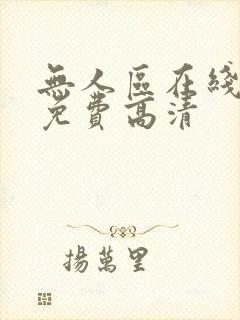 無人區在綫
免費高清
揚萬里